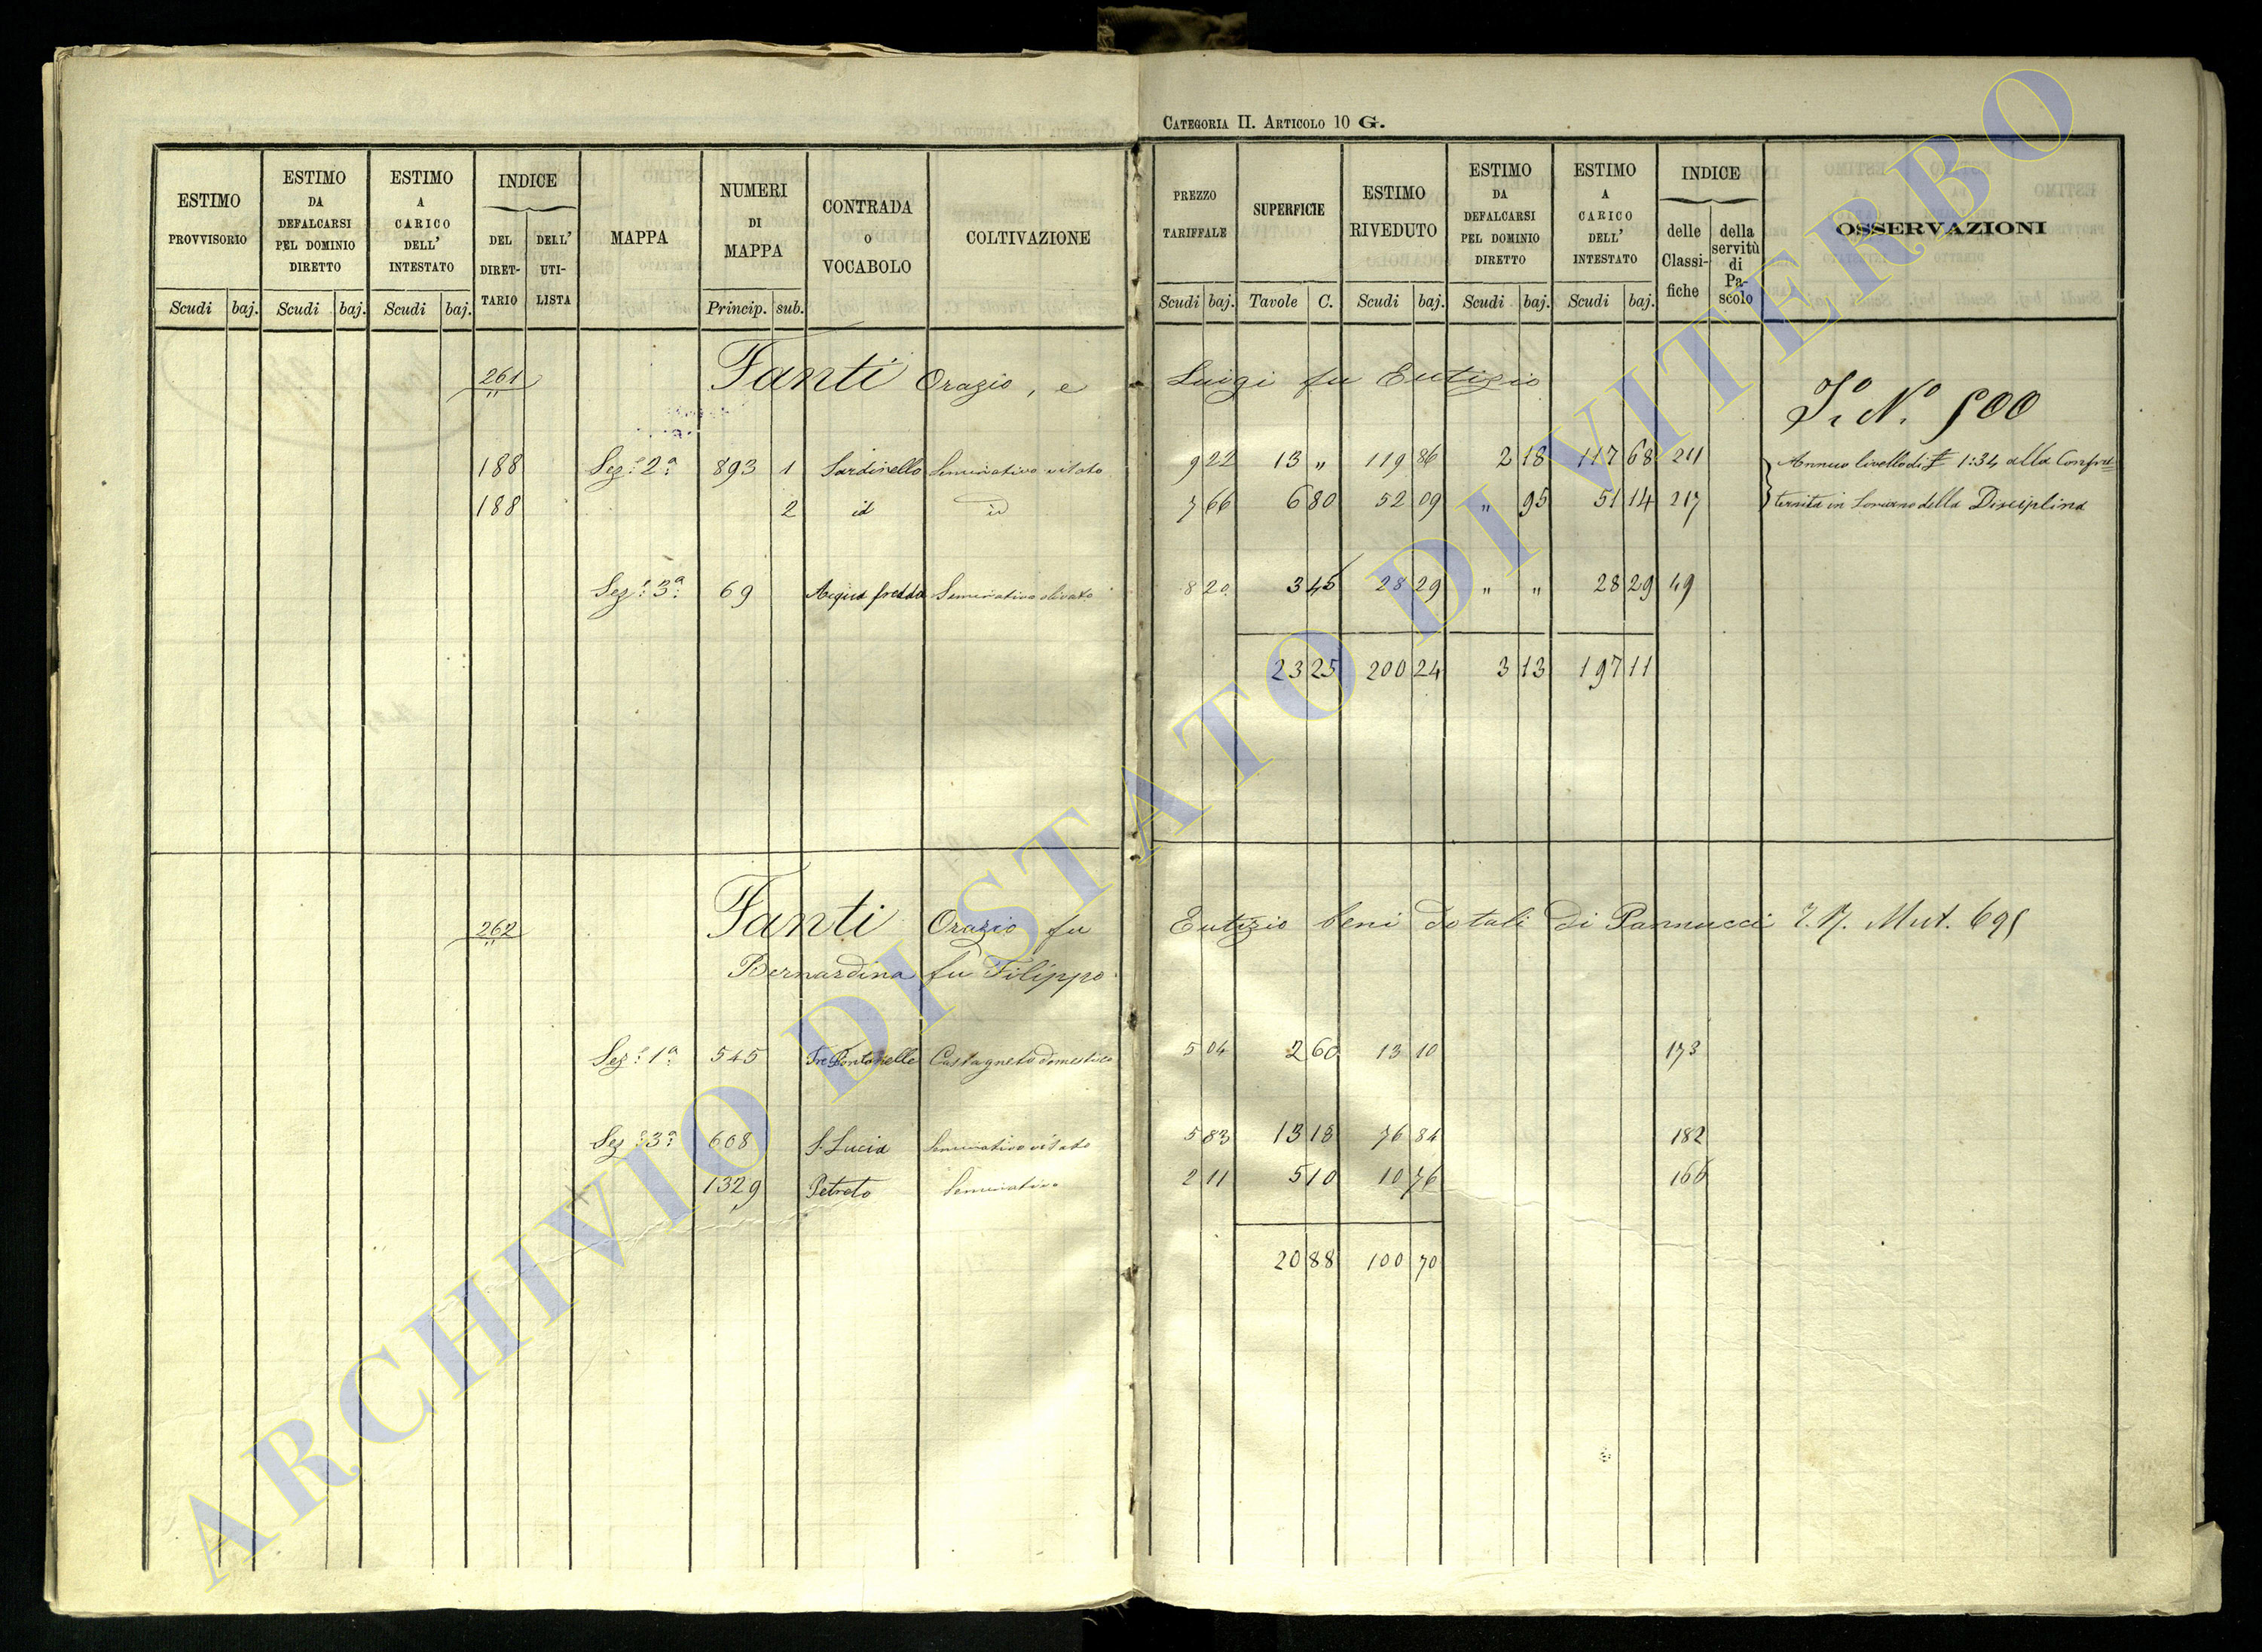 CATEGORIA II. ARTICOLO 10 G.
ESTIMO PROVVISORIO Scudi baj. ESTIMO DA DEFALCARSI PEL DOMINIO DIRETTO Scudi baj. ESTIMO A CARICO DELL' INTESTATO Scudi baj. INDICE DEL DIRETTARIO DELL' UTILISTA MAPPA NUMERI DI MAPPA Princip. sub. CONTRADA O VOCABOLO COLTIVAZIONE
PREZZO TARIFFALE Scudi baj. SUPERFICIE Tavole C. ESTIMO RIVEDUTO Scudi baj. ESTIMO DA DEFALCARSI PEL DOMINIO DIRETTO Scudi baj. ESTIMO A CARICO DELL' INTESTATO Scudi baj. INDICE delle Classifiche della servitù di Pascolo OSSERVAZIONI
261 Fanti Orazio, e Luigi fu Eutizio
N.° 500
188 Sez.e 2a 893 1 Sardinello Seminativo vitato 9 22 13 „ 119 86 2 18 117 68 211 Annuo livello di £ 1:34 alla Confra=
188 2 id id 7 66 6 80 52 09 „ 95 51 14 217 ternita in Soriano della Disciplina
Sez.e 3a 69 Acqua fredda Seminativo olivato 8 20 3 45 28 29 „ „ 28 29 49
23 25 200 24 3 13 197 11
262 Fanti Orazio fu Eutizio beni dotali di Pannucci Mut. 695
Bernardina fu Filippo
Sez.e 1a 545 Tre Fontanelle Castagneto domestico 5 04 2 60 13 10 173
Sez.e 3a 608 S. Lucia Seminativo vitato 5 83 13 18 76 84 182
1329 Petreto Seminativo 2 11 5 10 10 76 166
20 88 100 70
ARCHIVIO DI STATO DI VITERBO